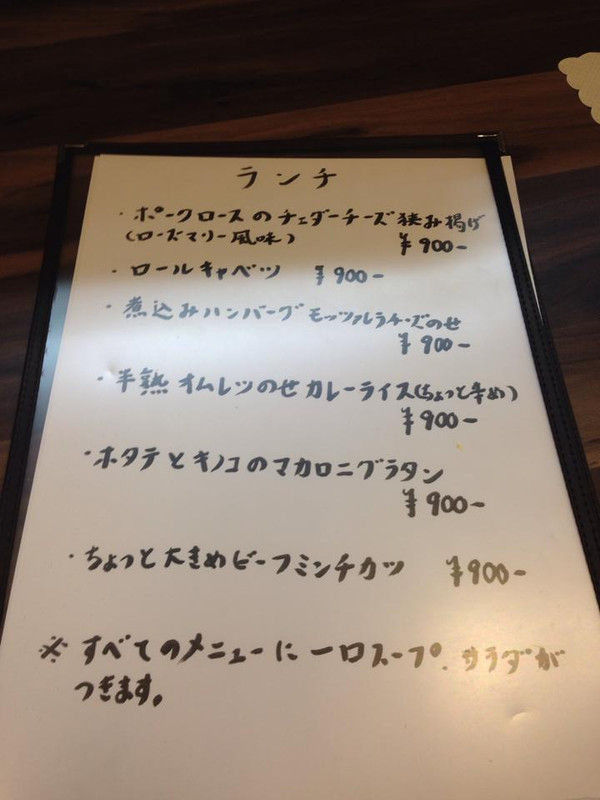 ランチ
・ポークロースのチェダーチーズ挟み揚げ
(ローズマリー風味) ¥900-
・ロールキャベツ ¥900-
・煮込みハンバーグモッツァレラチーズのせ
¥900-
・半熟オムレツのせカレーライス(ちょっと辛め)
¥900-
・ホタテとキノコのマカロニグラタン
¥900-
・ちょっと大きめビーフミンチカツ ¥900-
※すべてのメニューに一口スープ、サラダが
つきます。